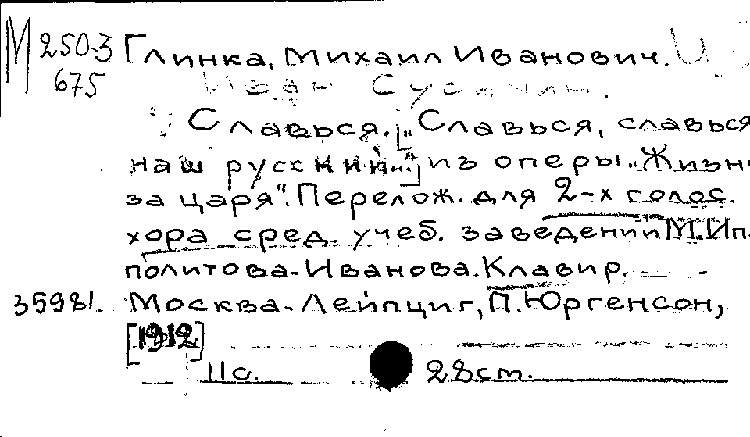 М 250-3 Глинка, Михаил Иванович.
675 Иван Сусанин.
Славься. [„Славься, славься
наш русский..."] из оперы „Жизнь
за царя". Перелож. для 2-х голос.
хора сред. учеб. заведений М. Ип.
политова-Иванова. Клавир.
35981. Москва-Лейпциг, П. Юргенсон,
[1912]
11 с. 28 см.